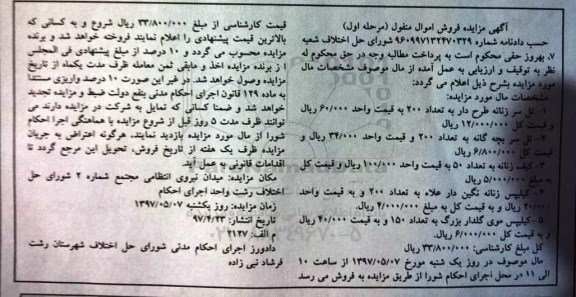 آگهی مزایده فروش اموال منقول (مرحله اول)
حسب دادنامه شماره ۹۶۰۹۹۷۱۳۲۴۷۰۳۲۹ شورای حل اختلاف شعبه
۷، بهروز حقی محکوم است به پرداخت مطالبه وجه در حق محکوم له
نظر به توقیف و ارزیابی به عمل آمده از مال موصوف مشخصات مال
مورد مزایده بشرح ذیل اعلام می گردد:
مشخصات مال مورد مزایده:
۱- گل سر زنانه طرح دار به تعداد ۲۰۰ به قیمت واحد ۶۰/۰۰۰ ریال
و قیمت کل ۱۲/۰۰۰/۰۰۰ ریال
۲- گل سر بچه گانه به تعداد ۲۰۰ و قیمت واحد ۳۴/۰۰۰ ریال و
قیمت کل ۶/۸۰۰/۰۰۰ ریال
۳- کیف زنانه به تعداد ۵۰ به قیمت واحد ۱۰۰/۰۰۰ ریال و قیمت کل
به مبلغ ۵/۰۰۰/۰۰۰ ریال
۴- کیلیپس زنانه نگین دار علاء به تعداد ۲۰۰ و به قیمت واحد
۲۰/۰۰۰ ریال و به قیمت کل به مبلغ ۴/۰۰۰/۰۰۰ ریال.
۵- کیلیپس موی گلدار بزرگ به تعداد ۱۵۰ و به قیمت ۴۰/۰۰۰ ریال
و به قیمت کل ۶/۰۰۰/۰۰۰ ریال.
کل مبلغ کارشناسی: ۳۳/۸۰۰/۰۰۰ ریال
مال موصوف در روز یک شنبه مورخ ۱۳۹۷/۰۵/۰۷ از ساعت ۱۰
الی ۱۱ در محل اجرای احکام شورا از طریق مزایده به فروش می رسد
قیمت کارشناسی از مبلغ ۳۳/۸۰۰/۰۰۰ ریال شروع و به کسانی که
بالاترین قیمت پیشنهادی را اعلام نمایند فروخته خواهد شد و برنده
مزایده محسوب می گردد و ۱۰ درصد از مبلغ پیشنهادی فی المجلس
از برنده مزایده اخذ و مابقی ثمن معامله ظرف مدت یکماه از تاریخ
مزایده وصول خواهد شد. در غیر این صورت ۱۰ درصد واریزی مستندا
به ماده ۱۲۹ قانون اجرای احکام مدنی بنفع دولت ضبط و مزایده تجدید
خواهد شد و ضمنا کسانی که تمایل به شرکت در مزایده دارند می
توانند ظرف مدت ۵ روز قبل از شروع مزایده با هماهنگی اجرا احکام
شورا از مال مورد مزایده بازدید نمایند. هرگونه اعتراض به جریان
مزایده ظرف یک هفته از تاریخ فروش، تحویل این مرجع گردد تا
اقدامات قانونی به عمل آید.
مکان مزایده: میدان نیروی انتظامی مجتمع شماره ۲ شورای حل
اختلاف رشت واحد اجرای احکام
زمان مزایده: روز یکشنبه ۱۳۹۷/۰۵/۰۷
تاریخ انتشار: ۹۷/۴/۲۳
م الف: ۲۱۲۷
دادورز اجرای احکام مدنی شورای حل اختلاف شهرستان رشت
فرشاد نبی زاده